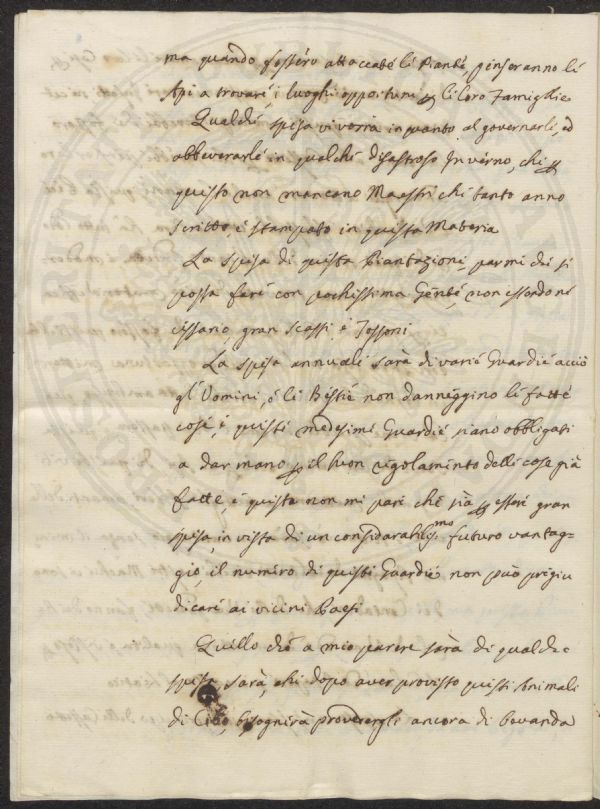 ma quando fossero attaccate le Piante, penseranno le
Api a trovare i luoghi opportuni p le loro Famiglie
Qualche spesa vi verrà in quanto al governarle, ed
abbeverarle in qualche disastroso Inverno, che p
questo non mancano Maestri che tanto anno
scritto, e stampato in questa Materia
La spesa di questa Piantazioni, parmi che si
possa fare con pochissima Gente, non essendo ne
cissario, gran scassi, e Fossoni
La spesa annuali sarà di varie Guardie acciò
gl'Uomini, e le Bestie non danneggino le fatte
cose, e questi medesimi Guardie siano obbligati
a dar mano p il buon regolamento delle cose già
fatte, e questa non mi pare che sia p essere gran
spesa, in vista di un considarabiliss.mo futuro vantag=
gio, il numero di questi Guardie non può prigiu
dicare ai vicini Paesi
Quello che a mio parere sarà di qualche
spesa sarà, che dopo aver provisto questi Animali
di Cibo, bisognirà provedergli ancora di bevanda